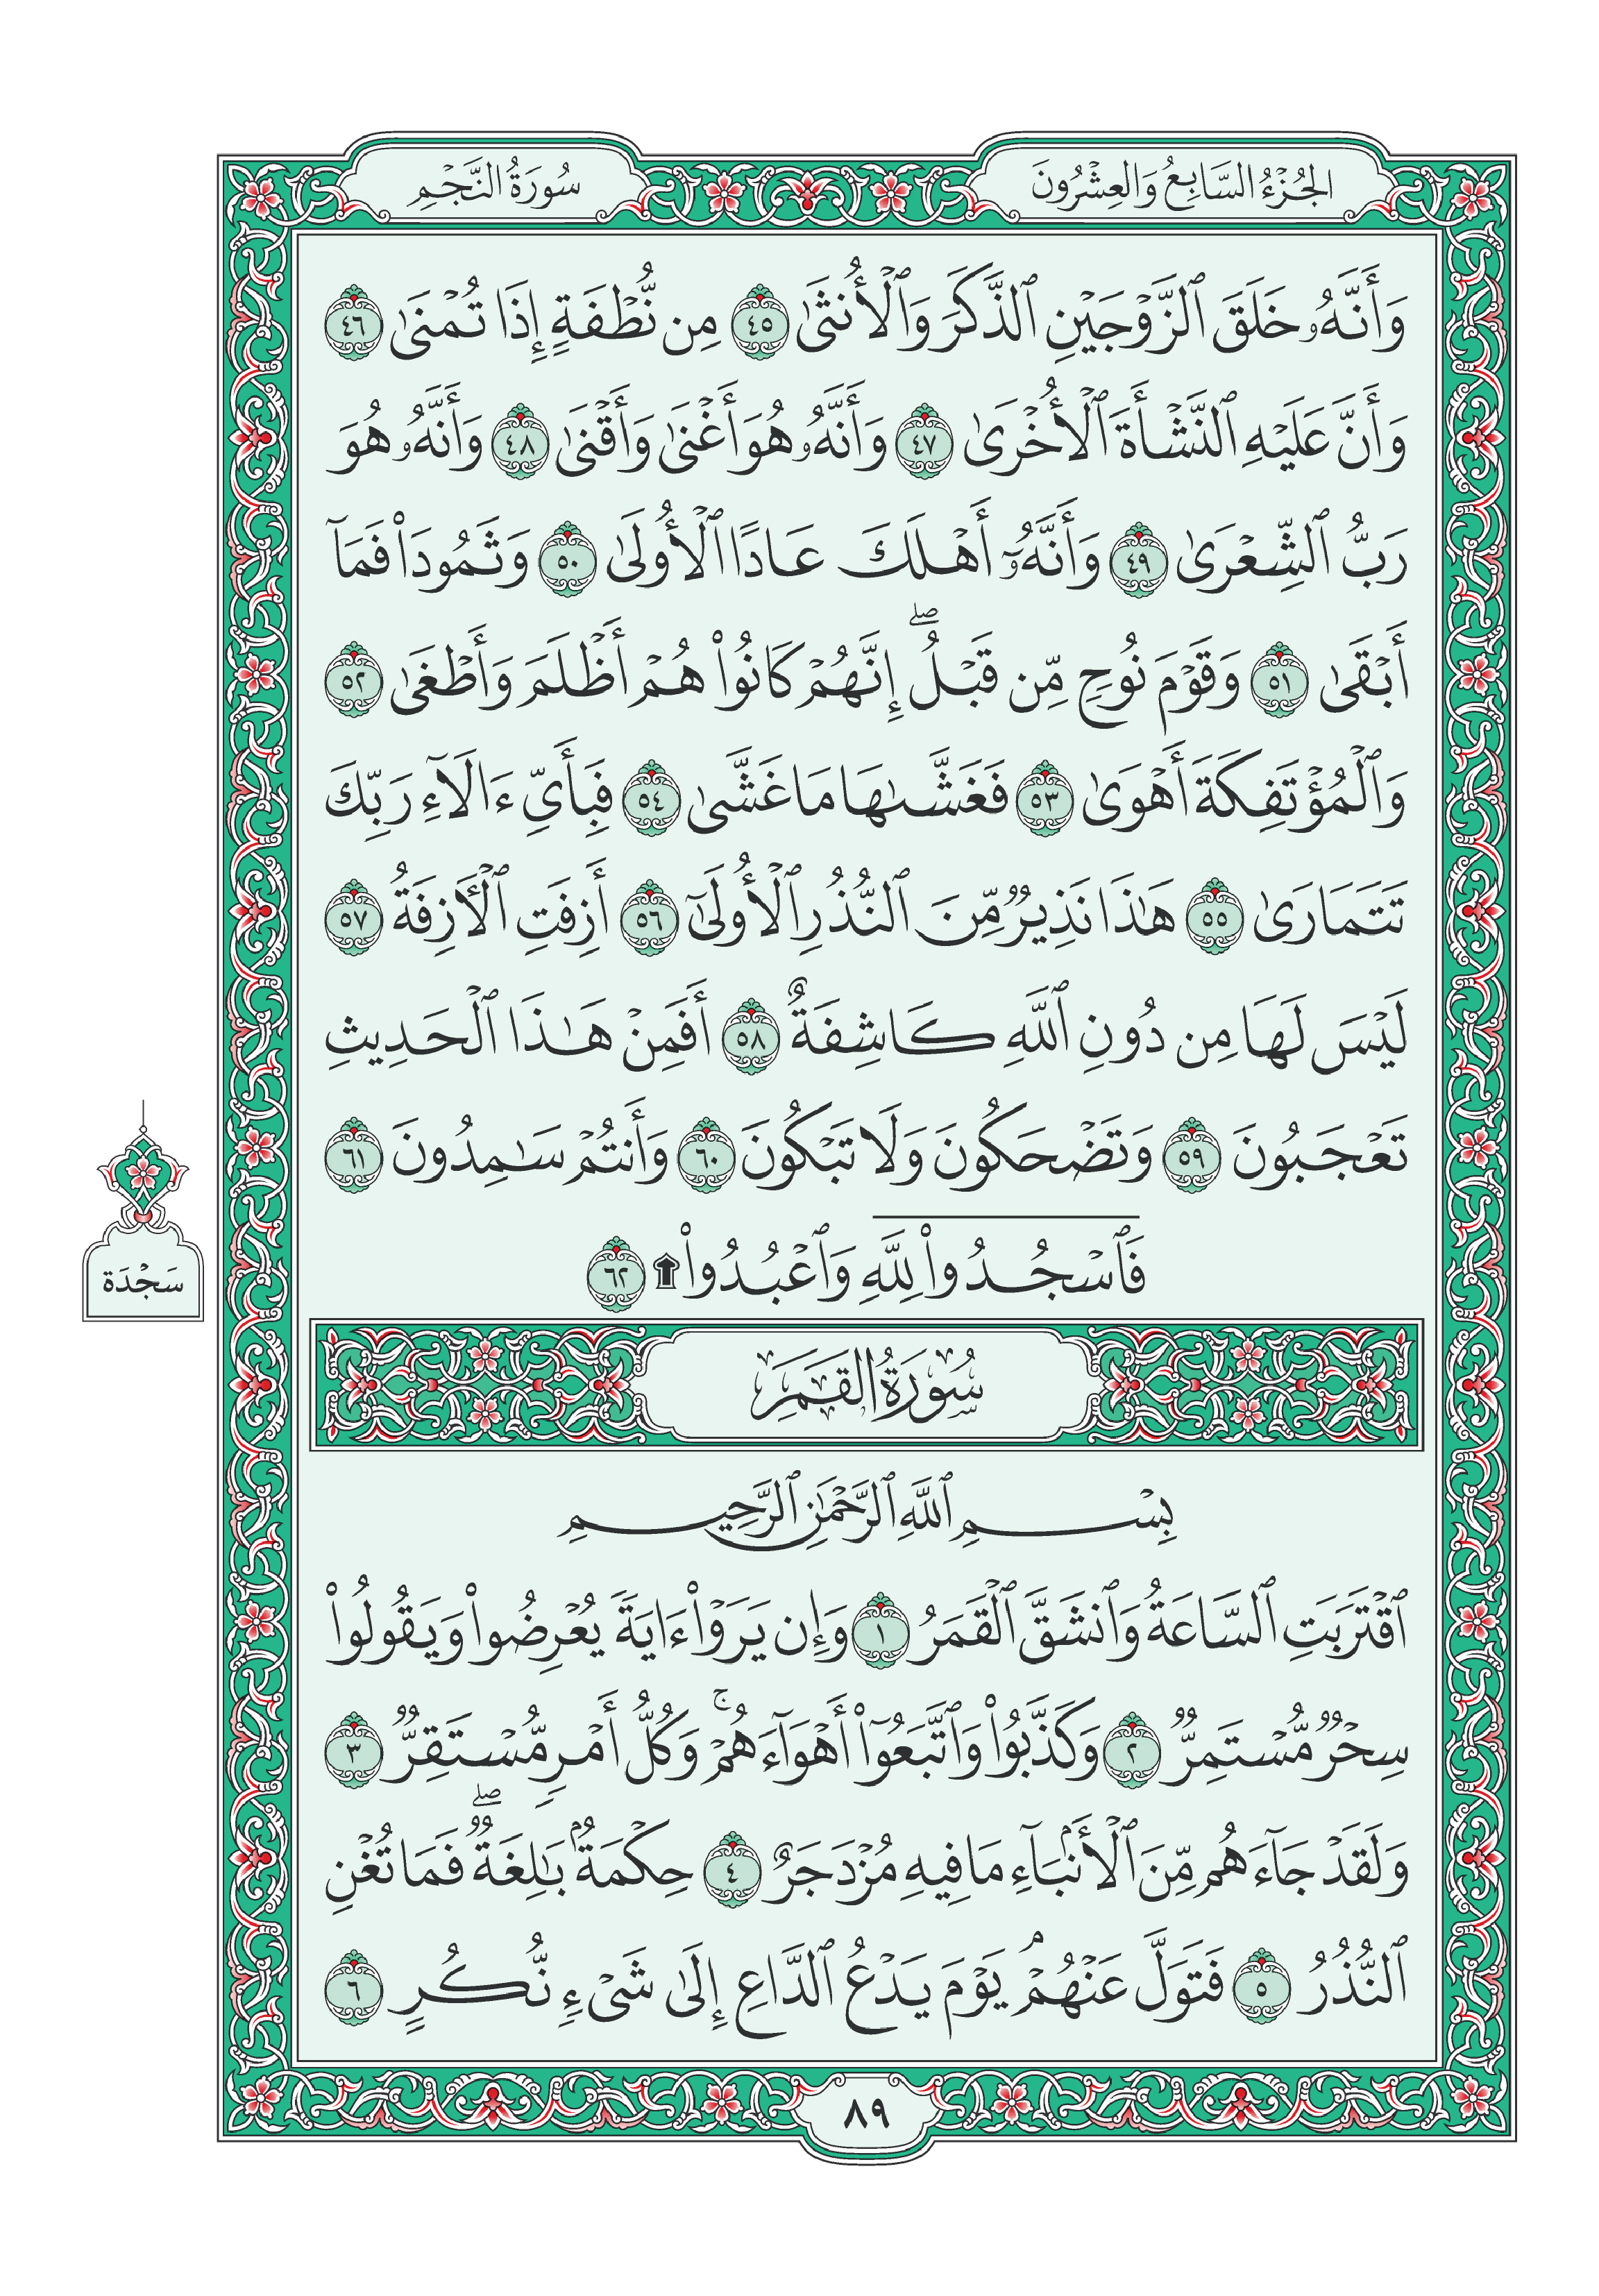 الجُزْءُ السَّابِعُ وَالعِشْرُونَ
سُورَةُ النَّجْمِ
وَأَنَّهُۥ خَلَقَ ٱلزَّوْجَيْنِ ٱلذَّكَرَ وَٱلْأُنثَىٰ ٤٥ مِن نُّطْفَةٍ إِذَا تُمْنَىٰ ٤٦
وَأَنَّ عَلَيْهِ ٱلنَّشْأَةَ ٱلْأُخْرَىٰ ٤٧ وَأَنَّهُۥ هُوَ أَغْنَىٰ وَأَقْنَىٰ ٤٨ وَأَنَّهُۥ هُوَ
رَبُّ ٱلشِّعْرَىٰ ٤٩ وَأَنَّهُۥٓ أَهْلَكَ عَادًا ٱلْأُولَىٰ ٥٠ وَثَمُودَا۟ فَمَآ
أَبْقَىٰ ٥١ وَقَوْمَ نُوحٍ مِّن قَبْلُ ۖ إِنَّهُمْ كَانُوا۟ هُمْ أَظْلَمَ وَأَطْغَىٰ ٥٢
وَٱلْمُؤْتَفِكَةَ أَهْوَىٰ ٥٣ فَغَشَّىٰهَا مَا غَشَّىٰ ٥٤ فَبِأَىِّ ءَالَآءِ رَبِّكَ
تَتَمَارَىٰ ٥٥ هَٰذَا نَذِيرٌ مِّنَ ٱلنُّذُرِ ٱلْأُولَىٰٓ ٥٦ أَزِفَتِ ٱلْـَٔازِفَةُ ٥٧
لَيْسَ لَهَا مِن دُونِ ٱللَّهِ كَاشِفَةٌ ٥٨ أَفَمِنْ هَٰذَا ٱلْحَدِيثِ
تَعْجَبُونَ ٥٩ وَتَضْحَكُونَ وَلَا تَبْكُونَ ٦٠ وَأَنتُمْ سَٰمِدُونَ ٦١
فَٱسْجُدُوا۟ لِلَّهِ وَٱعْبُدُوا۟ ۩ ٦٢
سَجْدَة
سُورَةُ القَمَرِ
بِسْمِ ٱللَّهِ ٱلرَّحْمَٰنِ ٱلرَّحِيمِ
ٱقْتَرَبَتِ ٱلسَّاعَةُ وَٱنشَقَّ ٱلْقَمَرُ ١ وَإِن يَرَوْا۟ ءَايَةً يُعْرِضُوا۟ وَيَقُولُوا۟
سِحْرٌ مُّسْتَمِرٌّ ٢ وَكَذَّبُوا۟ وَٱتَّبَعُوٓا۟ أَهْوَآءَهُمْ ۚ وَكُلُّ أَمْرٍ مُّسْتَقِرٌّ ٣
وَلَقَدْ جَآءَهُم مِّنَ ٱلْأَنۢبَآءِ مَا فِيهِ مُزْدَجَرٌ ٤ حِكْمَةٌۢ بَٰلِغَةٌ ۖ فَمَا تُغْنِ
ٱلنُّذُرُ ٥ فَتَوَلَّ عَنْهُمْ ۘ يَوْمَ يَدْعُ ٱلدَّاعِ إِلَىٰ شَىْءٍ نُّكُرٍ ٦
٨٩